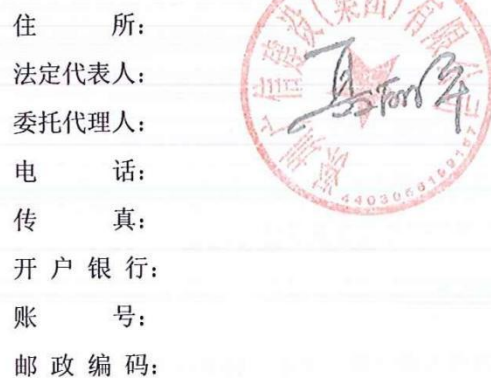 住 所:
法定代表人:
委托代理人:
电 话:
传 真:
开 户 银 行:
账 号:
邮 政 编 码:
深圳广信建设(集团)有限公司